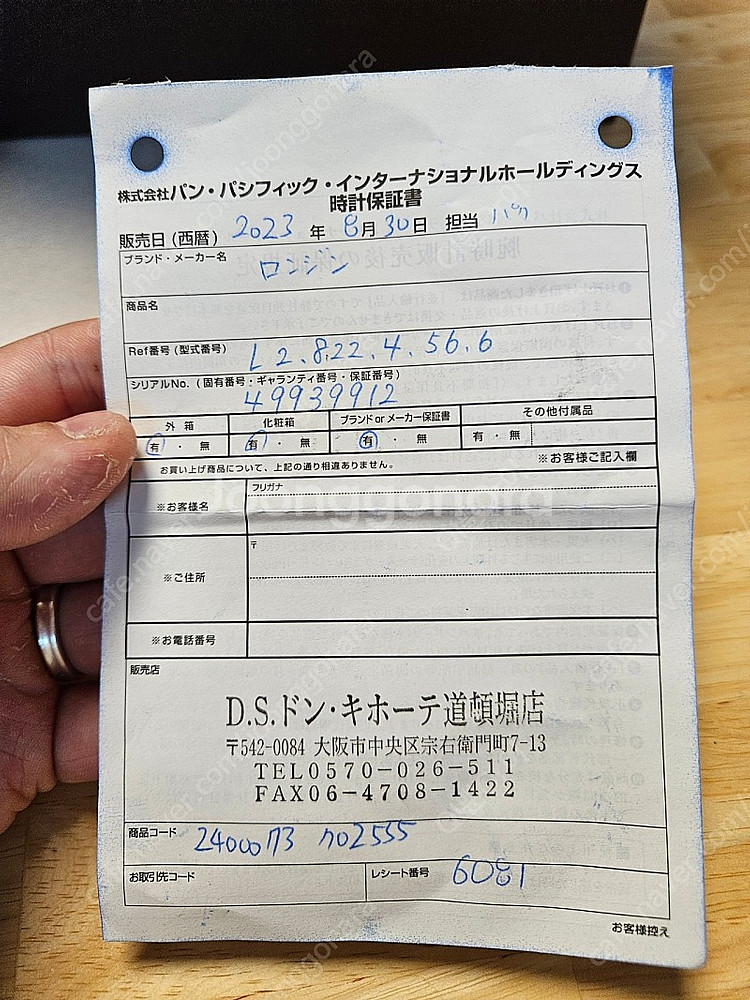 株式会社パン・パシフィック・インターナショナルホールディングス
時計保証書
販売日(西暦) 2023 年 8月 30日 担当 パク
ブランド・メーカー名 ロンジン
商品名
Ref番号(型式番号) L2.822.4.56.6
シリアルNo.(固有番号・ギャランティ番号・保証番号)
49939912
外箱 化粧箱 ブランドorメーカー保証書 その他付属品
有・無 有・無 有・無 有・無
お買い上げ商品について、上記の通り相違ありません。 ※お客様ご記入欄
フリガナ
※お客様名
〒
※ご住所
※お電話番号
販売店
D.S.ドン・キホーテ道頓堀店
〒542-0084 大阪市中央区宗右衛門町7-13
TEL0570-026-511
FAX06-4708-1422
商品コード 2400073 no2555
お取引先コード レシート番号 6081
お客様控え
Joonggonara